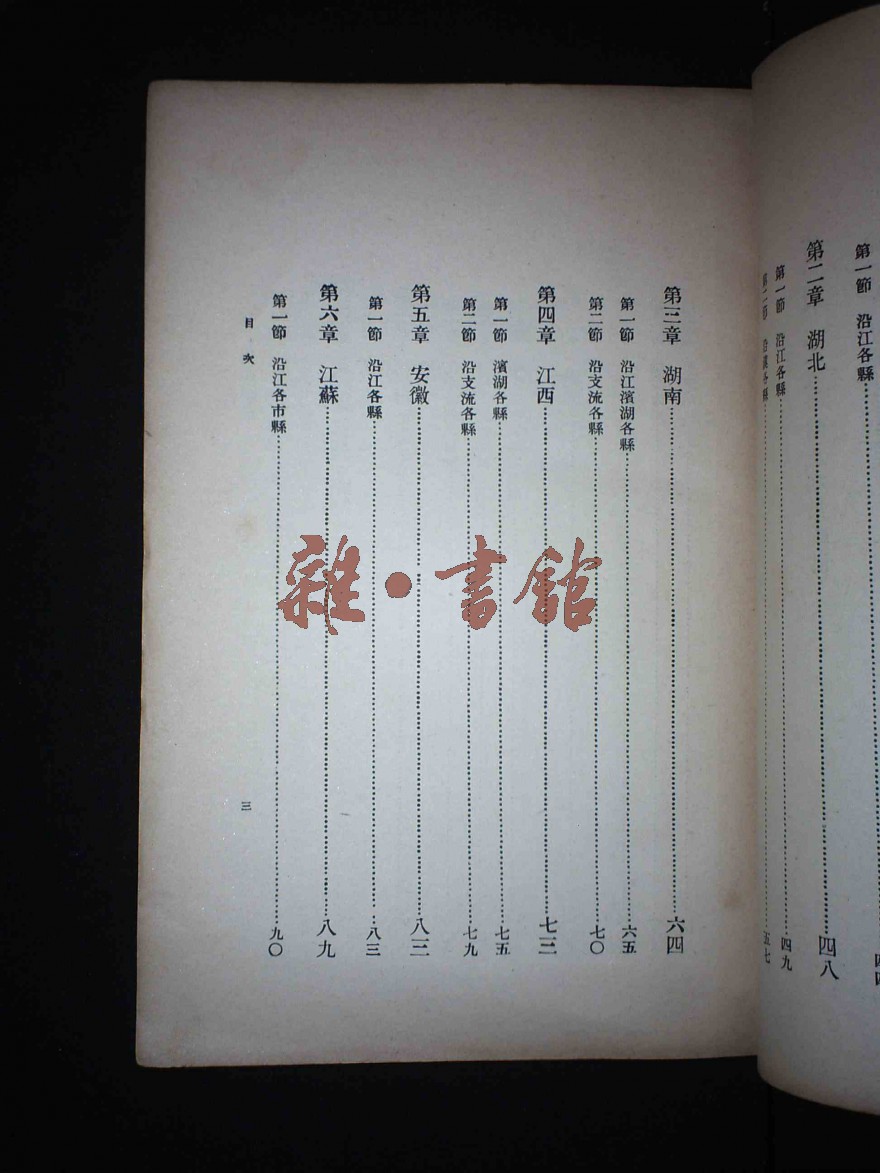 第一節　沿江各縣
第二章　湖北……四八
第一節　沿江各縣……四九
第二節　沿漢各縣……五七
第三章　湖南……六四
第一節　沿江濱湖各縣……六五
第二節　沿支流各縣……七〇
第四章　江西……七三
第一節　濱湖各縣……七五
第二節　沿支流各縣……七九
第五章　安徽……八三
第一節　沿江各縣……八三
第六章　江蘇……八九
第一節　沿江各市縣……九〇
目次
三
雜·書館